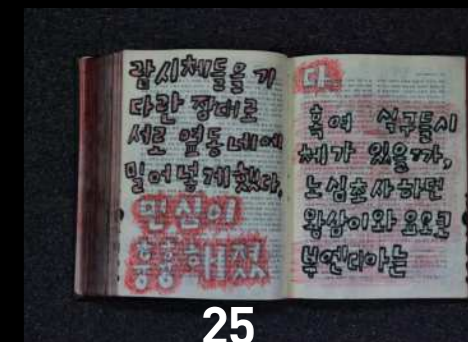 람시체들을 기
다란 장대로
서로 옆동네에
밀어넣게했다.
민심이
흉흉해졌
다
혹여 식구들시
체가 있을까,
노심초사하던
왕삼이와 요요큰
부엔디아는
25